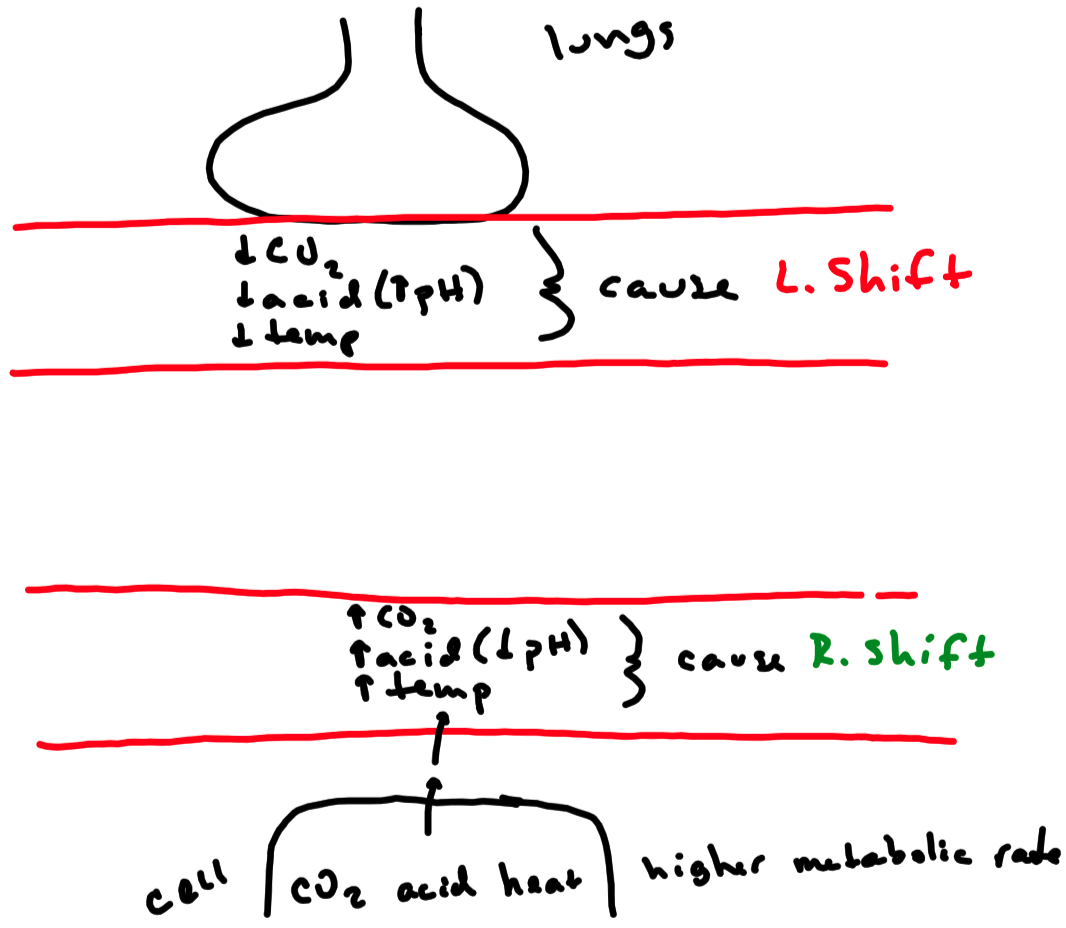 lungs
↓ CO₂
↓ acid (↑pH)
↓ temp
} cause L. Shift
↑ CO₂
↑ acid (↓pH)
↑ temp
} cause R. Shift
cell
CO₂ acid heat
higher metabolic rate